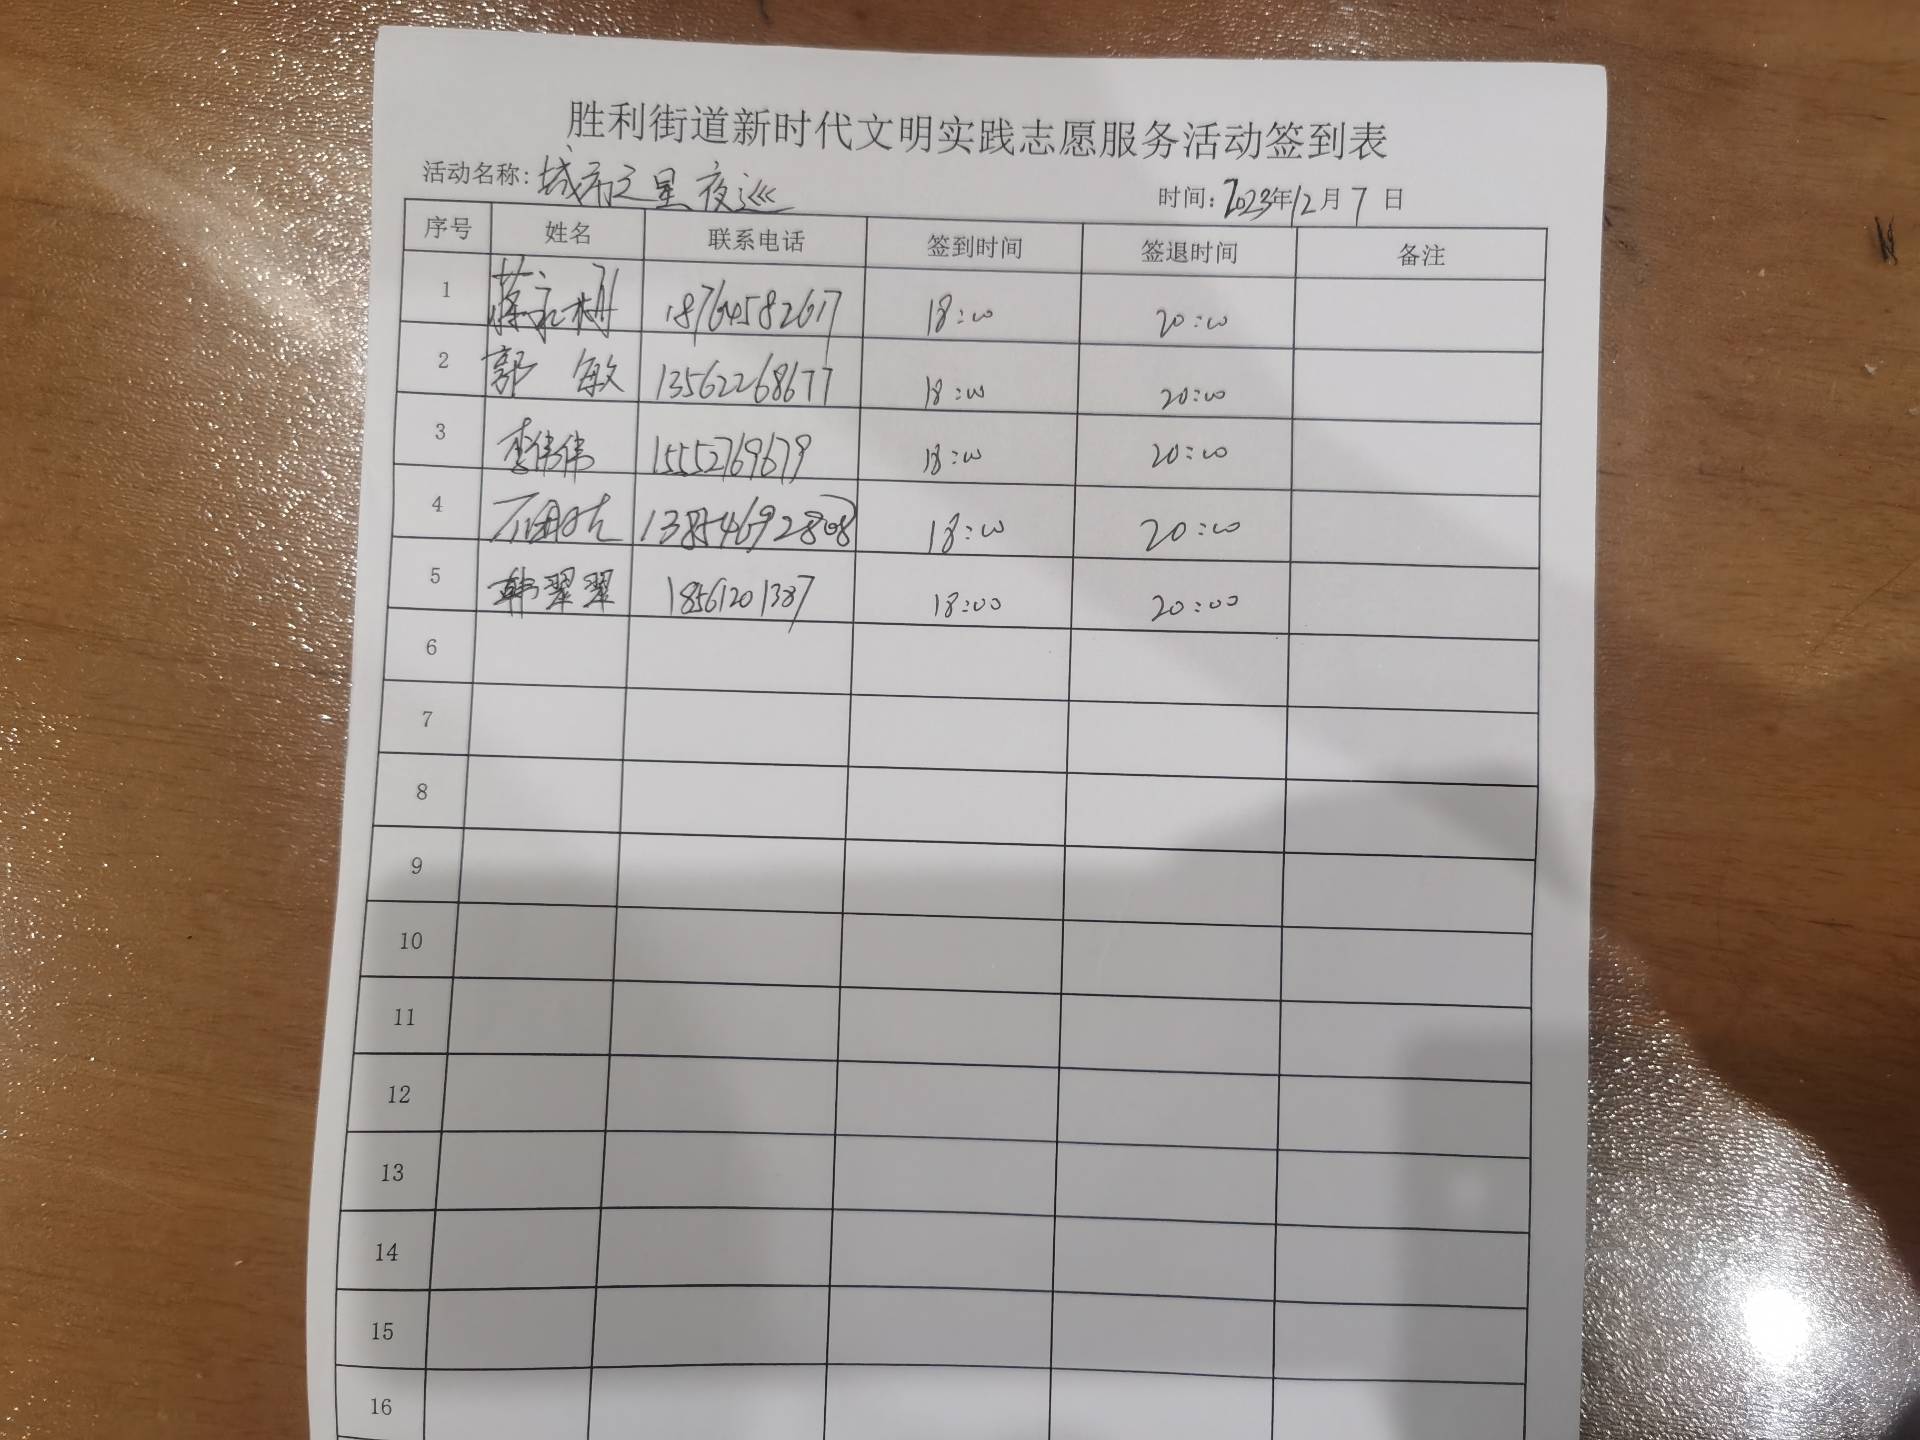 胜利街道新时代文明实践志愿服务活动签到表
活动名称: 城市之星夜巡 时间: 2023年12月7日
序号 姓名 联系电话 签到时间 签退时间 备注
1 18764582617 18:00 20:00
2 郭敏 13562268677 18:00 20:00
3 李伟伟 15552769679 18:00 20:00
4 18:00 20:00
5 韩翠翠 18561201387 18:00 20:00
6
7
8
9
10
11
12
13
14
15
16